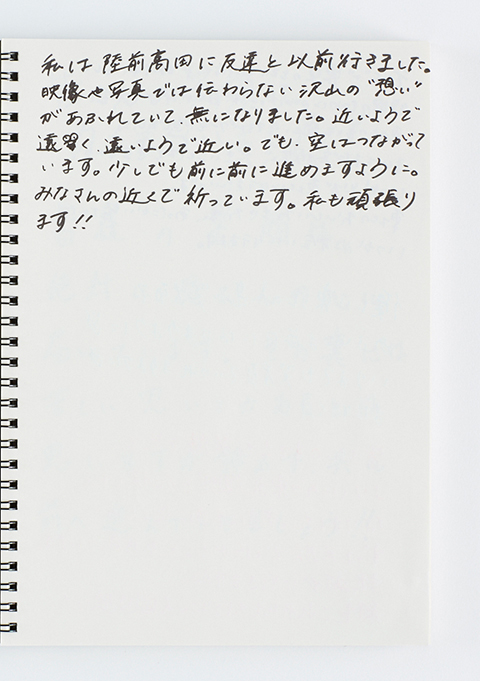 私は陸前高田に友達と以前行きました。
映像や写真では伝わらない沢山の"想い"
があふれていて、無になりました。近いようで
遠く、遠いようで近い。でも、空はつながって
います。少しでも前に前に進めますように。
みなさんの近くで祈っています。私も頑張り
ます!!